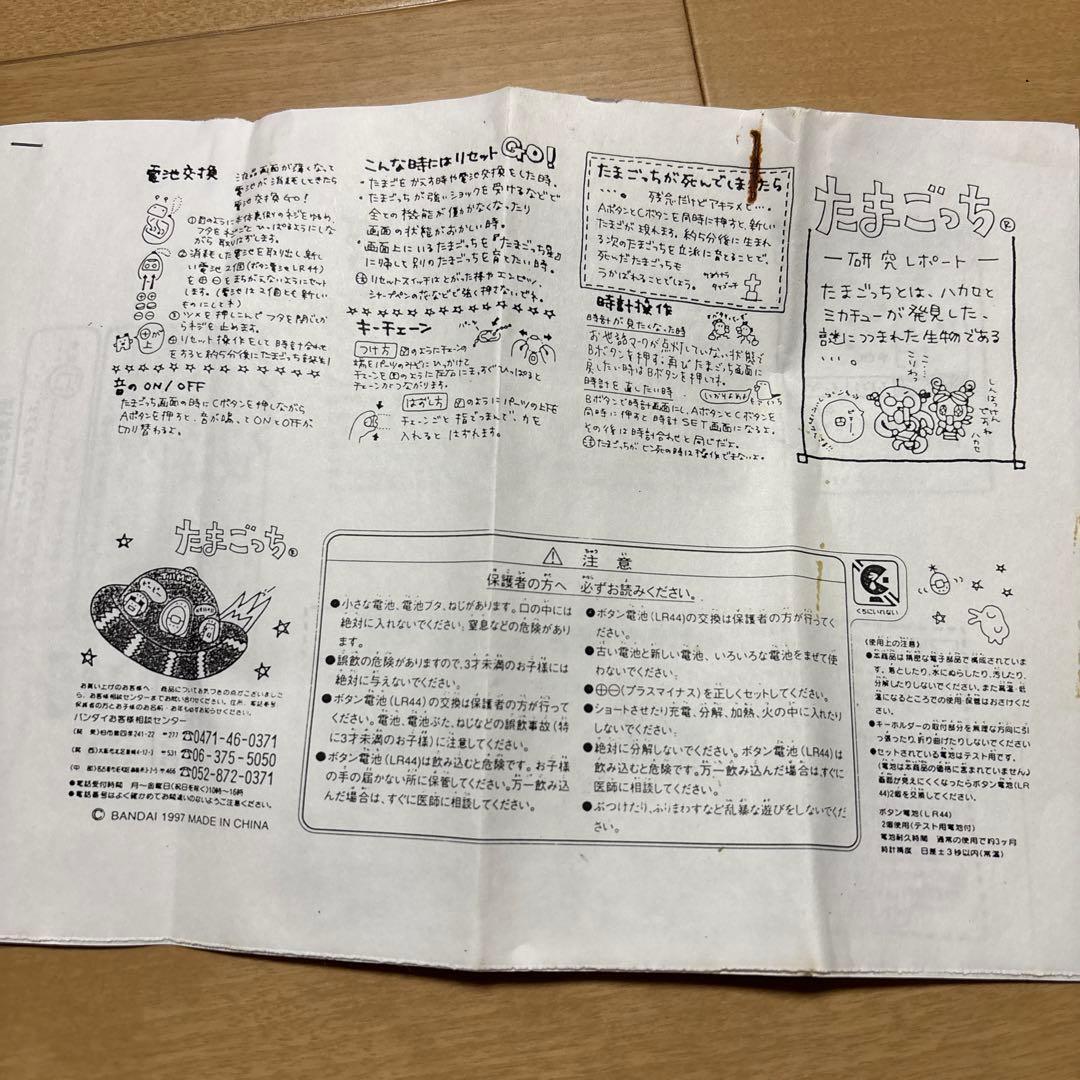 電池交換
液晶画面が薄くなって
電池が消耗してきたら
電池交換GO!
①図のように本体裏後のネジをゆるめ、
フタをネジごとひっぱるようにしな
がら取りはずします。
②消耗した電池を取り出し新し
い電池2個(ボタン電池LR44)
を⊕⊖をまちがえないようにセット
します。(電池は2個とも新しい
ものにしてネ)
③ツメを押しこんでフタを閉じてか
らネジを止めます。
④リセット操作をして時計合わせ
をすると約5分後にたまごっち誕生!
音のON/OFF
たまごっち画面の時にCボタンを押しながら
Aボタンを押すと、音が鳴ってONとOFFが
切り替わるよ。
こんな時にはリセットGO!
・たまごをかえす時や電池交換をした時。
・たまごっちが強いショックを受けるなどで
全ての機能が働かなくなったり
画面の状態がおかしい時。
・画面上にいるたまごっちを『たまごっち星』
に帰して別のたまごっちを育てたい時。
注 リセットスイッチはとがった棒やエンピツ、
シャープペンの芯などで強く押さないでネ。
キーチェーン
パーツ
つけ方 図のようにチェーンの
端をパーツのみぞにひっかけて
チェーンを図のように左右にまっすぐひっぱると
チェーンがつながります。
はずし方 図のようにパーツの上下を
チェーンごと指でつまんで、力を
入れるとはずれます。
たまごっちが死んでしまったら
…。
残念だけどアキラメて…。
AボタンとCボタンを同時に押すと、新しい
たまごが現れます。約5分後に生まれ
る次のたまごっちを立派に育てることで、
死んだたまごっちも
うかばれることでしょう。
時計操作
時計が見たくなった時
お世話マークが点灯していない状態で
Bボタンを押す。再びたまごっち画面に
戻したい時はBボタンを押してネ。
時計を直したい時
Bボタンで時計画面にし、AボタンとCボタンを
同時に押すと時計SET画面になるよ。
その後は時計合わせと同じだよ。
注 たまごっちがピン死の時は操作できないよ。
たまごっち®
―研究レポート―
たまごっちとは、ハカセと
ミカチューが発見した、
謎につつまれた生物である
…。
ハカセ
たまごっち®
お買い上げのお客様へ 商品についてお気づきの点がございました
ら、お客様相談センターまでお問い合わせください。住所、電話番号
保護者の方とお子様のお名前・お年も必ずお知らせください
バンダイお客様相談センター
☎0471-46-0371
☎06-375-5050
☎052-872-0371
●電話受付時間 月〜金曜日(祝日を除く)10時〜16時
●電話番号はよく確かめてお間違いのないようご注意ください。
© BANDAI 1997 MADE IN CHINA
⚠ 注意
保護者の方へ 必ずお読みください。
●小さな電池、電池ブタ、ねじがあります。口の中には
絶対に入れないでください。窒息などの危険があり
ます。
●誤飲の危険がありますので、3才未満のお子様には
絶対に与えないでください。
●ボタン電池(LR44)の交換は保護者の方が行って
ください。電池、電池ぶた、ねじなどの誤飲事故(特
に3才未満のお子様)に注意してください。
●ボタン電池(LR44)は飲み込むと危険です。お子様
の手の届かない所に保管してください。万一飲み込
んだ場合は、すぐに医師に相談してください。
●ボタン電池(LR44)の交換は保護者の方が行ってく
ださい。
●古い電池と新しい電池、いろいろな電池をまぜて使
わないでください。
●⊕⊖(プラスマイナス)を正しくセットしてください。
●ショートさせたり充電、分解、加熱、火の中に入れたり
しないでください。
●絶対に分解しないでください。ボタン電池(LR44)は
飲み込むと危険です。万一飲み込んだ場合は、すぐに
医師に相談してください。
●ぶつけたり、ふりまわすなど乱暴な遊びをしないでくだ
さい。
くちにいれない
《使用上の注意》
●本商品は精密な電子部品で構成されていま
す。落としたり、水にぬらしたり、汚したり、
分解したりしないでください。また高温・低
温になるところでの使用・保管はおさけくだ
さい。
●キーホルダーの取付部分を無理な方向に引
っ張ったり、折り曲げたりしないでください
●セットされている電池はテスト用です。
(電池は本商品の価格に含まれていません)
画面が見えにくくなったらボタン電池(LR
44)2個を交換してください。
ボタン電池(LR44)
2個使用(テスト用電池付)
電池耐久時間 通常の使用で約3ヶ月
時計精度 日差±3秒以内(常温)